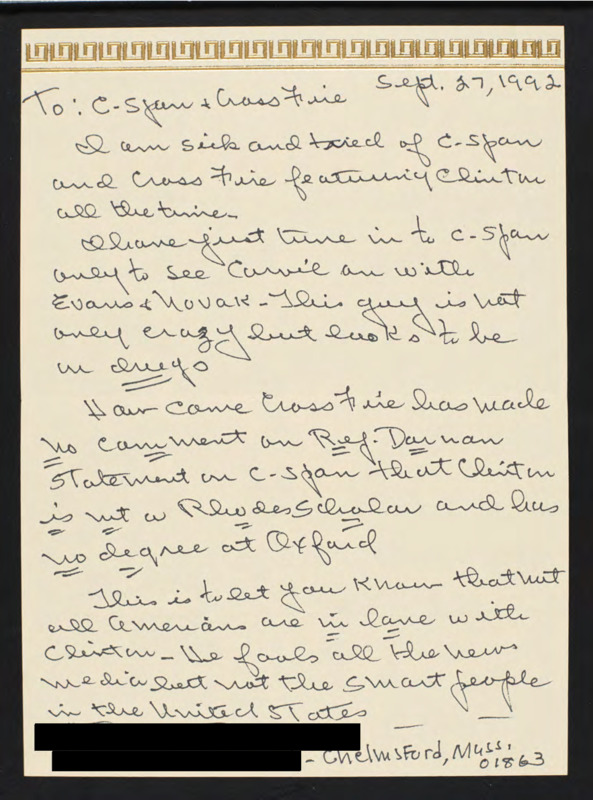 Sept. 27, 1992
To: C-Span & CrossFire
I am sick and tried of C-Span
and CrossFire featuring Clinton
all the time.
I have just tune in to C-Span
only to see Carvil on with
Evans & Novak - This guy is not
only crazy but looks to be
on drugs
How come CrossFire has made
no comment on Rej. Dornan
Statement on C-Span that Clinton
is not a Rhodes Scholar and has
no degree at Oxford
This is to let you Know that not
all Amerians are in love with
Clinton - He fools all the news
media but not the smart people
in the United States
- Chelmsford, Mass.
01863